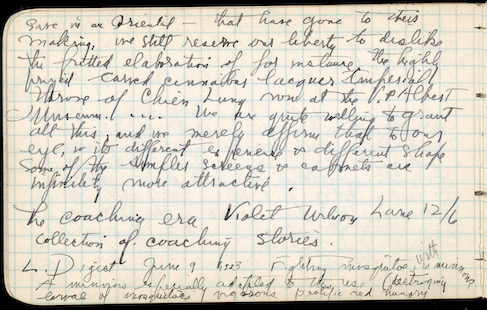 save in an Oriental — that have gone to their
making, we still reserve our liberty to dislike
the fretted elaboration of for instance the highly
prized carved cinnabar lacquer Imperial
Throne of Chien Lung now at the V. & Albert
Museum. .... We are quite willing to grant
all this, and we merely affirm that to our
eye, in its different essence & different shape
Some of the simpler screens & cabinets are
infinitely more attractive.
The coaching era Violet Wilson Lane 12/6
Collection of coaching stories.
L. Digest June 9 1923 Fighting mosquitoes with minnows
A minnow especially adapted to the use destroying
larvae of mosquitoes vigorous prolific and hungry